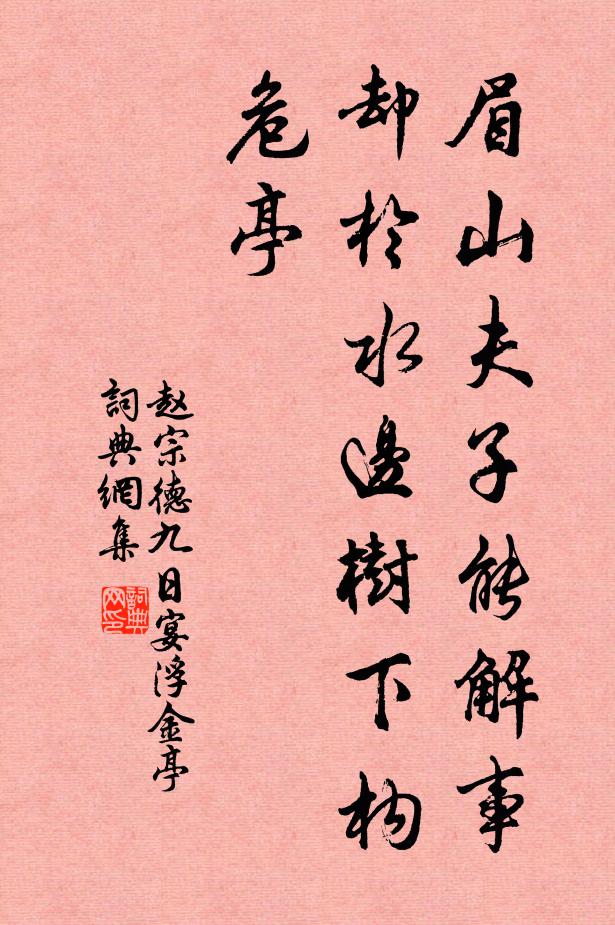 眉山夫子能解事
却於水邊樹下构
危亭
赵宗德九日宴浮金亭
詞典網集
詞典
网印